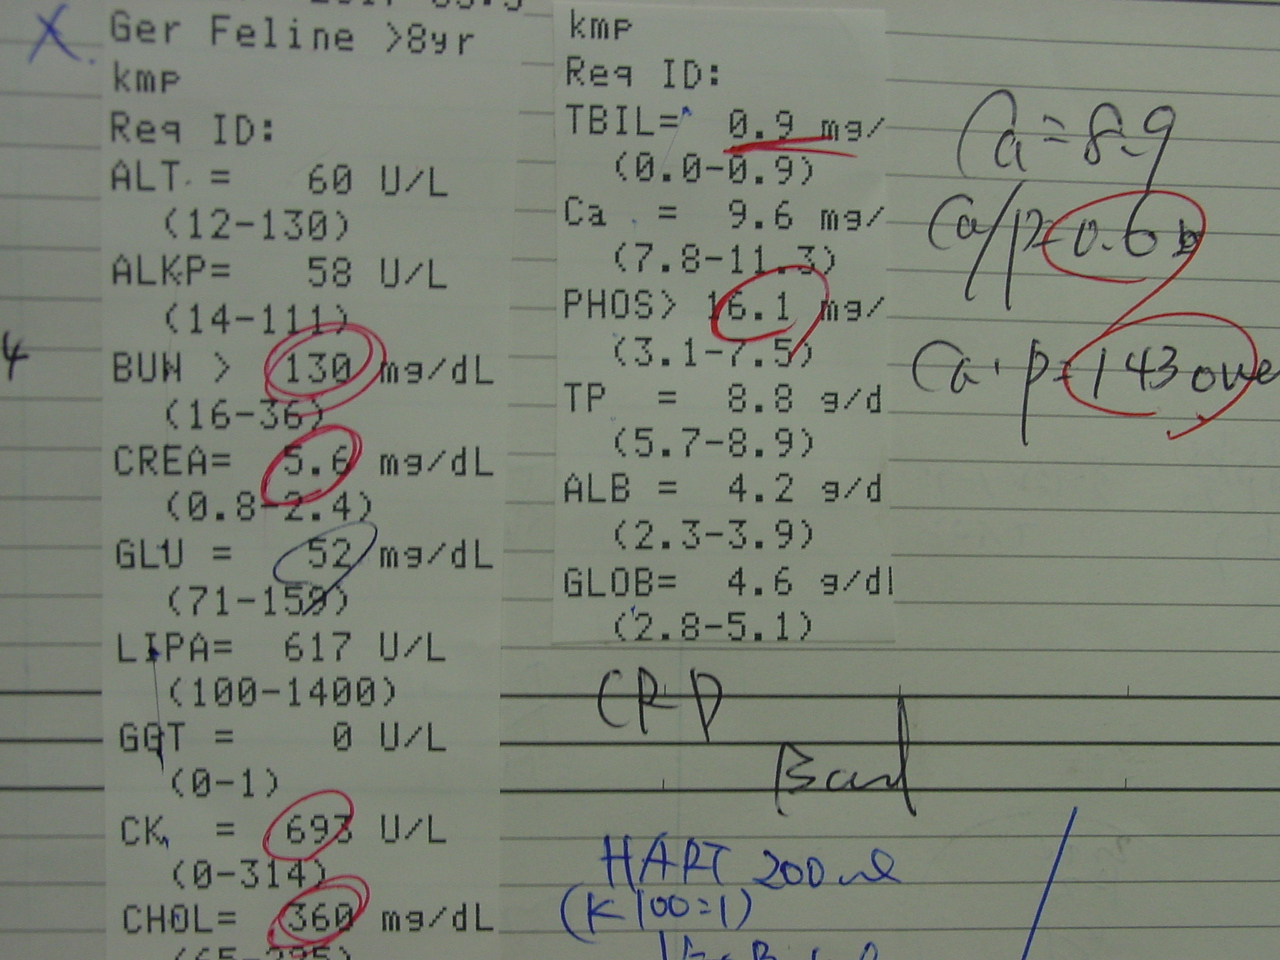 Ger Feline >8yr
kmp
Req ID:
ALT = 60 U/L
(12-130)
ALKP= 58 U/L
(14-111)
BUN > 130 mg/dL
(16-36)
CREA= 5.6 mg/dL
(0.8-2.4)
GLU = 52 mg/dL
(71-159)
LIPA= 617 U/L
(100-1400)
GGT = 0 U/L
(0-1)
CK = 693 U/L
(0-314)
CHOL= 360 mg/dL
kmp
Req ID:
TBIL= 0.9 mg/
(0.0-0.9)
Ca = 9.6 mg/
(7.8-11.3)
PHOS> 16.1 mg/
(3.1-7.5)
TP = 8.8 g/d
(5.7-8.9)
ALB = 4.2 g/d
(2.3-3.9)
GLOB= 4.6 g/dl
(2.8-5.1)
Ca = 8.9
Ca/p = 0.6
Ca.p = 143 ove
CRP
Bad
HART 200ml
(K 100=1)
4
X.